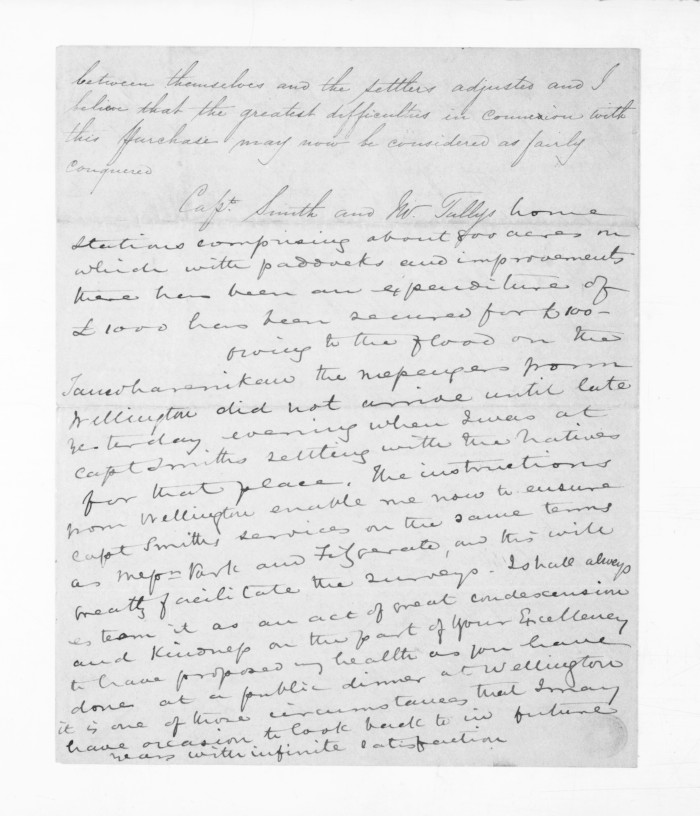 between themselves and the settlers adjusted and I
believe that the greatest difficulties in connexion with
this purchase may now be considered as fairly
conquered
Capt. Smith and Mr. Tullys home
stations comprising about 800 acres on
which with paddocks and improvements
there has been an expenditure of
£1000 has been secured for £100-
owing to the flood on the
Tauwharenikau the messengers from
Wellington did not arrive until late
yesterday evening when I was at
Capt Smiths settling with the Natives
for that place. The instructions
from Wellington enable me now to ensure
Capt Smiths services on the same terms
as Messrs Park and Fitzgerald, and this will
greatly facilitate the surveys - I shall always
esteem it as an act of great condescension
and kindness on the part of Your Excellency
to have proposed my health as you have
done at a public dinner at Wellington
it is one of those circumstances that I may
have occasion to look back to in future
years with infinite satisfaction